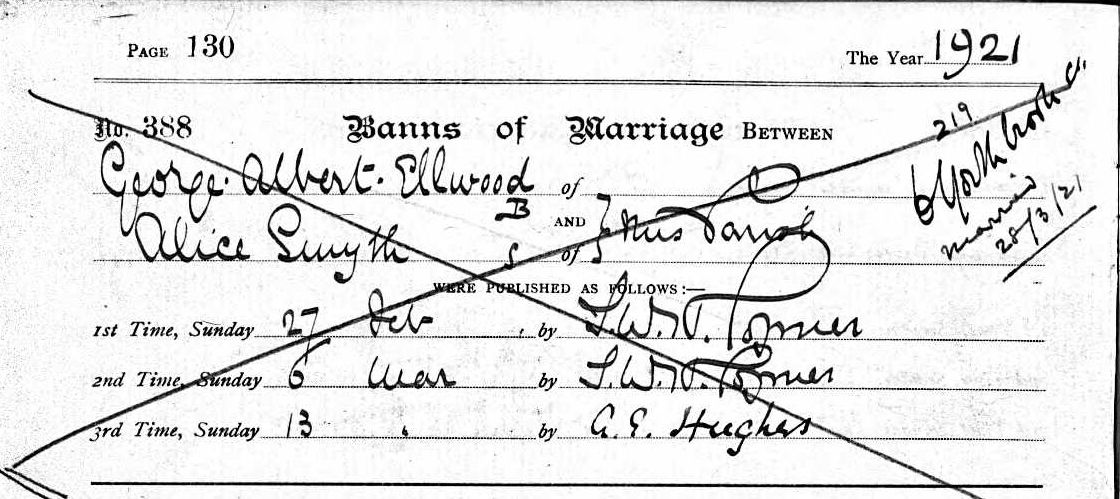 PAGE 130
The Year 1921
No. 388 Banns of Marriage BETWEEN
219
George Albert Ellwood of
B
AND } this Parish
Alice Smyth S of
married
28/3/21
WERE PUBLISHED AS FOLLOWS:—
1st Time, Sunday 27 Feb by T.W.H.
2nd Time, Sunday 6 Mar by T.W.H.
3rd Time, Sunday 13 " by A. E. Hughes